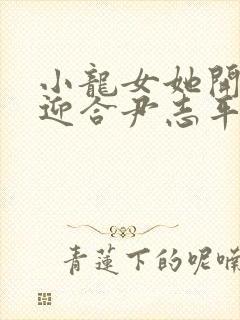 小龍女她開
迎合尹志平
青蓮下的呢喃